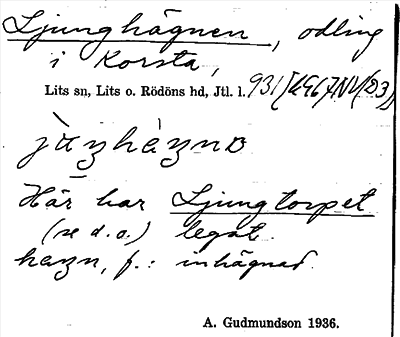 Ljunghägnen, odling
i Korsta,
Lits sn, Lits o. Rödöns hd, Jtl. l. 931
Här har Ljungtorpet
(se d.o.) legat.
hazn, f.: inhägnad.
A. Gudmundson 1936.